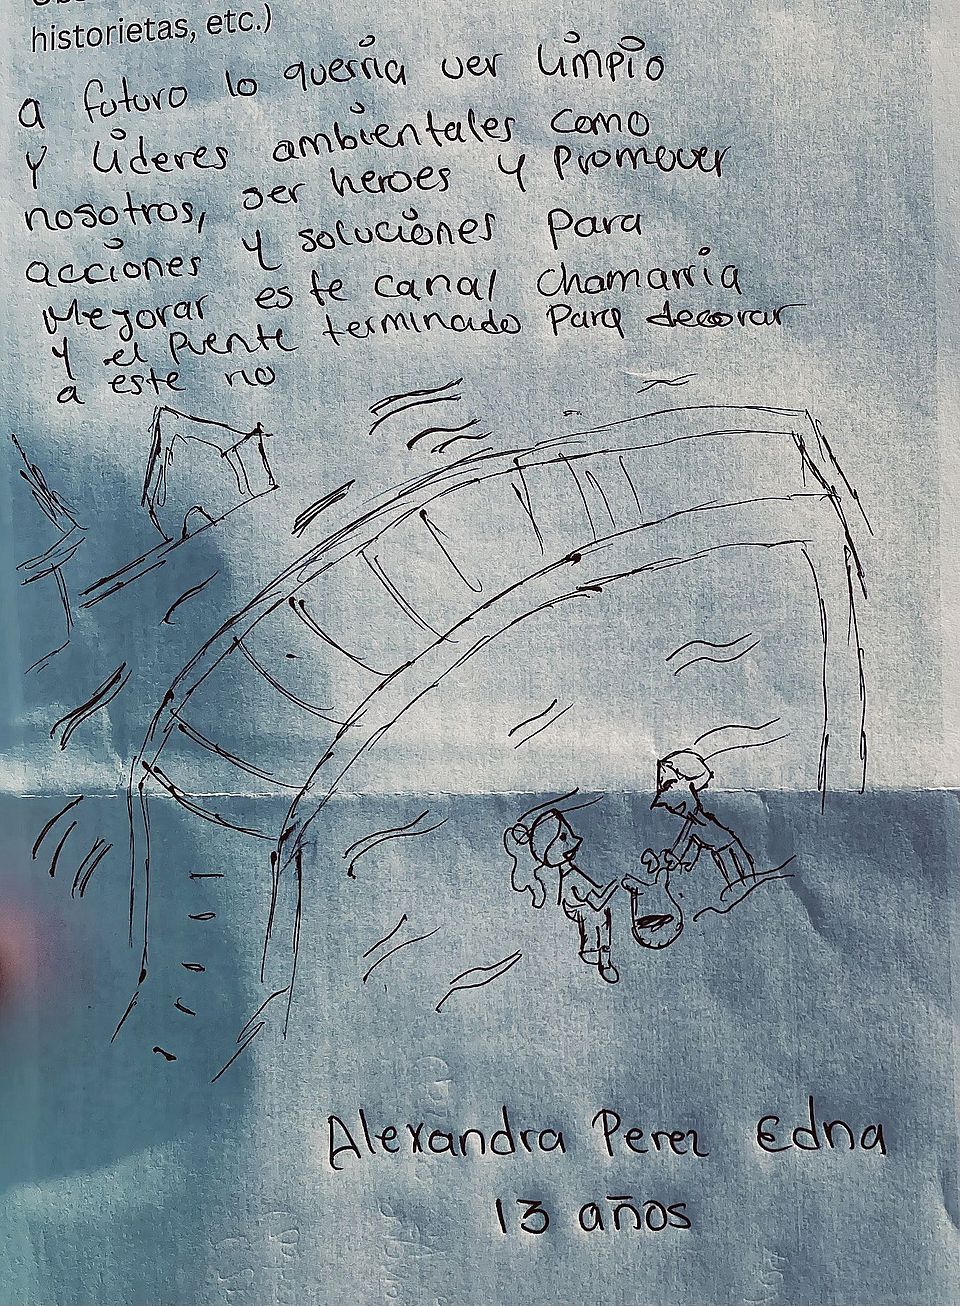 historietas, etc.)
a futuro lo querria ver limpio
y lideres ambientales como
nosotros, ser heroes y promover
acciones y soluciones para
Mejorar este canal chamarria
y el puente terminado Para decorar
a este
Alexandra Perez Edna
13 años